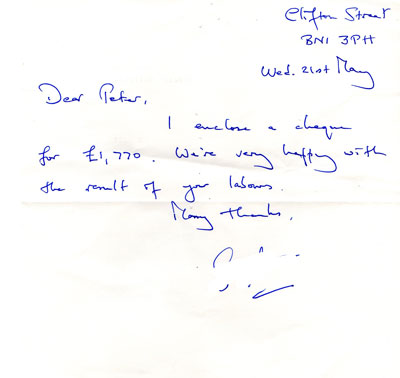 Clifton Street
BN1 3PH
Wed. 21st May
Dear Peter,
I enclose a cheque
for £1,770. We're very happy with
the result of your labours.
Many thanks,